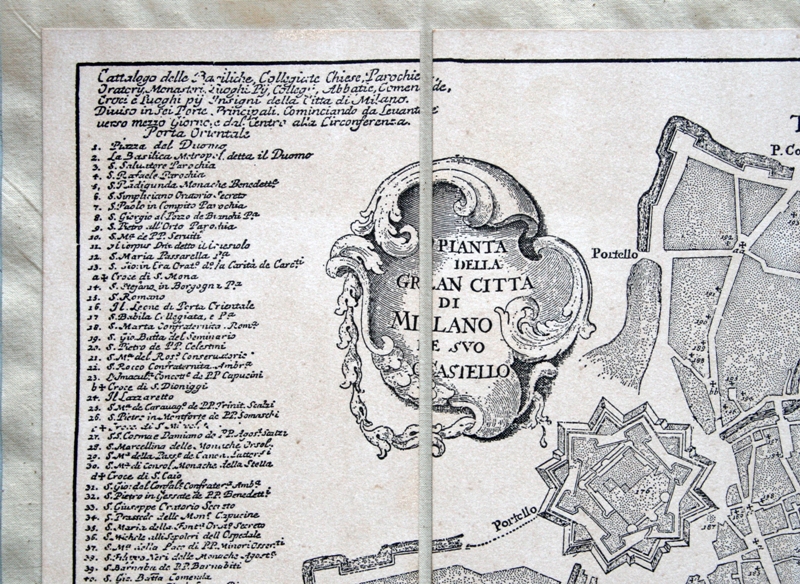 Cattalogo delle Basiliche, Collegiate Chiese, Parochie
Oratorÿ, Monasteri, Luoghi Pÿ, Collegi, Abbatie, Comende,
Croci e Luoghi pÿ Insigni della Citta di Milano.
Diuiso in sei Porte Principali. Cominciando da Leuante
uerso mezzo Giorno, e dal Centro alla Circonferenza.
Porta Orientale
1. Piazza del Duomo
2. La Basilica Metropol. detta il Duomo
3. S. Saluatore Parochia
4. S. Rafaele Parochia
5. S. Radigunda Monache Benedettᵉ
6. S. Simpliciano Oratorio Secreto
7. S. Paolo in Compito Parochia
8. S. Giorgio al Pozzo de Bianchi Pᵃ
9. S. Pietro all'Orto Parochia
10. S. Mᵃ de PP. Seruiti
11. Il Corpus Dni detto il
12. S. Maria Passarella Pᵃ
13. S. Gio: in Era Oratᵒ dᵉ la Carità de Carcᵗⁱ
a✝ Croce di S. Mona
14. S. Stefano in Borgogna Pᵃ
15. S. Romano
16. Il Leone di Porta Orientale
17. S. Babila Collegiata, e Pᵃ
18. S. Marta Confraternita Romᵃ
19. S. Gio Batta del Seminario
20. S. Pietro de PP. Celestini
21. S. Mᵃ del Rosᵒ Conseruatorio
22. S. Rocco Confraternita Ambrᵃ
23. L'Imaculᵃ Concettᵉ de PP Capucini
b✝ Croce di S. Dioniggi
24. Il Lazzaretto
25. S. Mᵃ de Carauagᵒ de PP. Trinit. Scalzi
26. S. Pietro in Monforte de PP. Somaschi
27. S.S. Cosma e Damiano de PP. Agosᵗ Scalzi
28. S. Marcellina delle Monache Orsol.
29. S. Mᵃ della Passᵉ de Canon. Latterⁱ
30. S. Mᵃ di Consol. Monache della Stella
d✝ Croce di S. Caio
31. S. Gio: del Confalᵉ Confraterᵃ Ambᵃ
32. S. Pietro in Gessate de PP. Benedettⁱ
33. S. Giuseppe Oratorio Secreto
34. S. Prassede delle Monᵉ Capucine
35. S. Maria della Fontᵃ Oratᵒ Secreto
36. S. Michele alli Sepolcri dell Ospedale
37. S. Mᵃ della Pace di PP. Minori Osserⁱ
38. S. Filippo Neri delle Monache Agostᵉ
39. S. Barnaba de PP. Barnabiti
40. S. Gio. Batta Comenda
PIANTA
DELLA
GRAN CITTA
DI
MILANO
E SVO
CASTELLO
T
P. Co
Portello
Portello
176